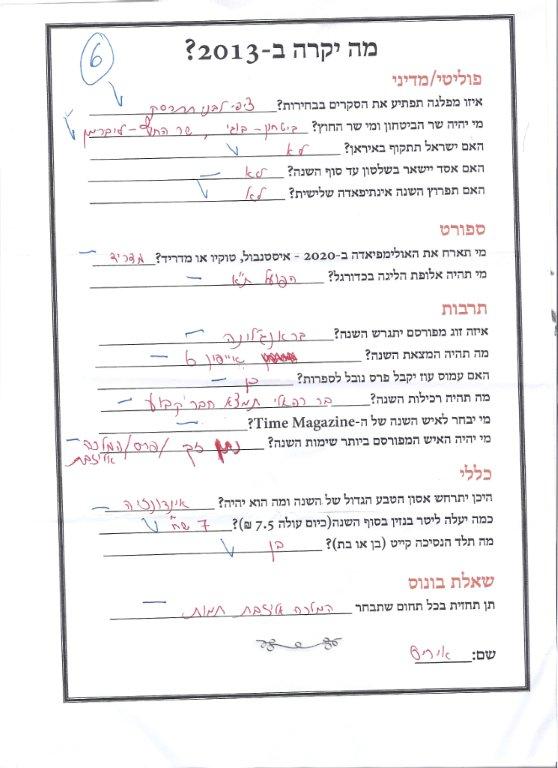 6
מה יקרה ב-2013?
פוליטי/מדיני
איזו מפלגה תפתיע את הסקרים בבחירות? ציפי לבני
מי יהיה שר הביטחון ומי שר החוץ? ביטחון - בוגי, שר החוץ - ליברמן
האם ישראל תתקוף באיראן? לא
האם אסד יישאר בשלטון עד סוף השנה? לא
האם תפרוץ השנה אינתיפאדה שלישית? לא
ספורט
מי תארח את האולימפיאדה ב-2020 - איסטנבול, טוקיו או מדריד? מדריד
מי תהיה אלופת הליגה בכדורגל? הפועל ת"א
תרבות
איזה זוג מפורסם יתגרש השנה? בראנג'לינה
מה תהיה המצאת השנה? אייפון 6
האם עמוס עוז יקבל פרס נובל לספרות? כן
מה תהיה רכילות השנה? בר רפאלי תמצא חבר קבוע
מי יבחר לאיש השנה של ה-Time Magazine?
מי יהיה האיש המפורסם ביותר שימות השנה? /פרס/המלכה
אליזבת
כללי
היכן יתרחש אסון הטבע הגדול של השנה ומה הוא יהיה? אינדונזיה
כמה יעלה ליטר בנזין בסוף השנה(כיום עולה 7.5 ₪)? 7 ש"ח
מה תלד הנסיכה קייט (בן או בת)? בן
שאלת בונוס
תן תחזית בכל תחום שתבחר המלכה אליזבת תמות
שם: איריס